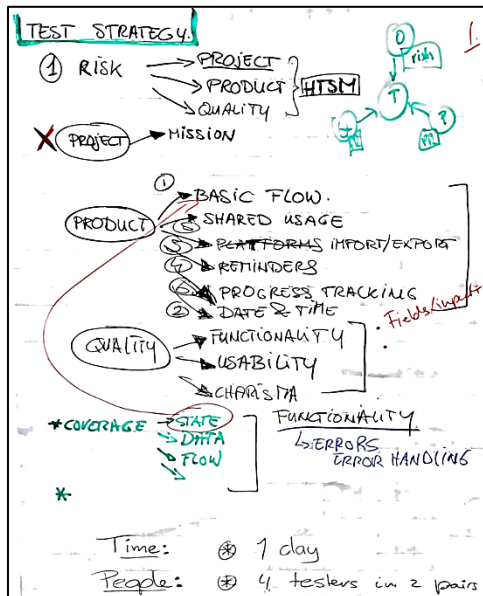 TEST STRATEGY.
1.
① RISK
PROJECT
PRODUCT
QUALITY
HTSM
O
risk
T
PROJECT
MISSION
①
PRODUCT
BASIC FLOW.
SHARED USAGE
③ PLATFORMS IMPORT/EXPORT
④ REMINDERS
PROGRESS TRACKING
② DATE & TIME
Fields/input
QUALITY
FUNCTIONALITY
USABILITY
CHARISMA
* COVERAGE STATE
DATA
FLOW
*
FUNCTIONALITY
ERRORS
ERROR HANDLING
Time: ⊛ 1 day
People: ⊛ 4 testers in 2 pairs